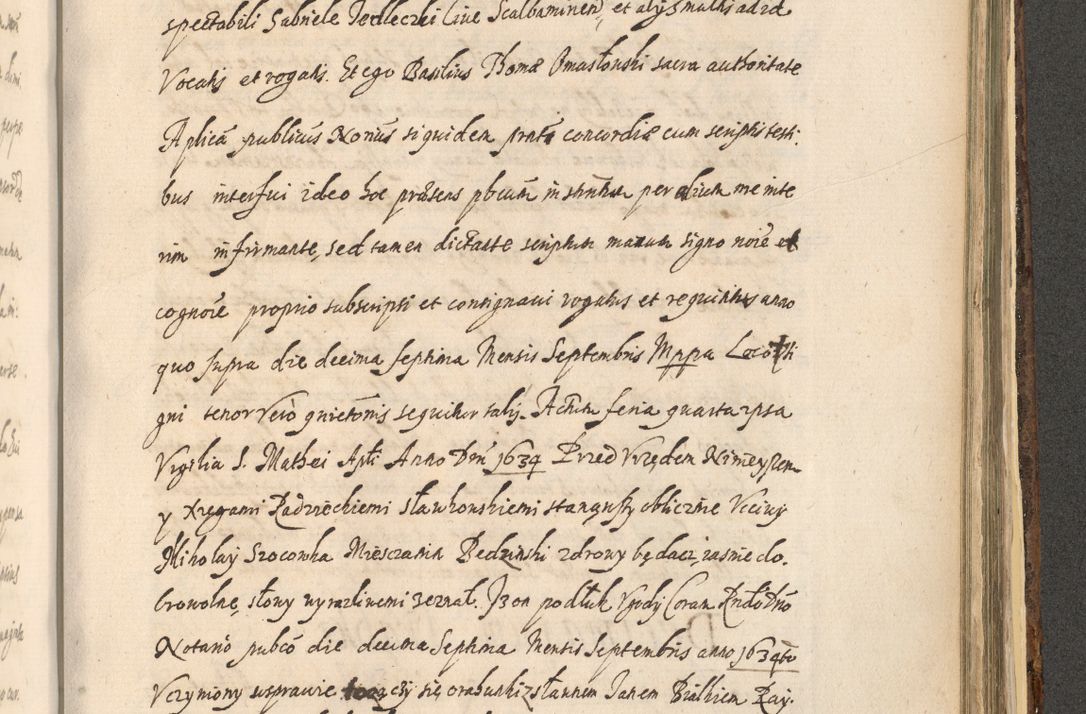 spectabili Gabriele Jedleczki Cive Scalbamirien, et alijs multis ad id
Vocatis et rogatis. Et ego Basilius Thomæ Omasłowski sacra authoritate
Aplicā publicus Norius siquidem pratæ concordiæ cum scriptis testi
bus interfui ideo hoc præsens pbcum instrntum per alium me inte
rim infirmante, sed tamen dictante scriptum manum signo noie et
cognoie proprio subscripsi et consignavi rogatus et requisitus anno
quo supra die decima septima Mensis Septembris Mppa Loco
gni tenor Vero quietonis sequitur talis. Actum feria quarta ipsa
Vigilia S. Mathei Apłi Anno Dni 1634 Przed Vrzędem Nimeyszem
y Xięgami Radzieckiemi Sławkowskiemi stanąwszy obliczne Vcciwy
Mikołay Szocowka Miesczanin Bedzinski zdrowy będacz, iasnie do
browolne, słowy wyrazliwemi zeznał. Jz on podłuk Vgody Coram Rndo Dno
Notario pubco die decima Septima Mensis Septembris anno 1634to
Vczyniony wsprawie toczączy się orabunki z sławnem Janem Białkiem Ray